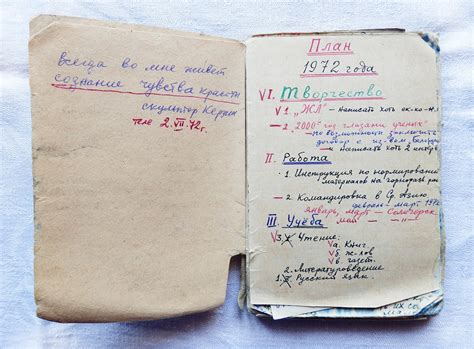 всегда во мне живет
сознание чувства красоты
скульптор
теле 2.VII.72г.
План
1972 года
VI. Творчество
V 1. „ЖЛ" – написать хоть
– 2. „2000 год глазами ученых"
– по возможности заключить
договор с из-вом
– и написать хоть 2
II. Работа
1. Инструкция по нормированию
материалов на
2. Командировка в Ср. Азию
феврал – март 1972
январь, март – Солигорск
май –
III. Учёба
V 3. Чтение:
Vа. Книг.
Vб. ж-лов
Vв. газет.
2. Литературоведение
1. Русский язык.